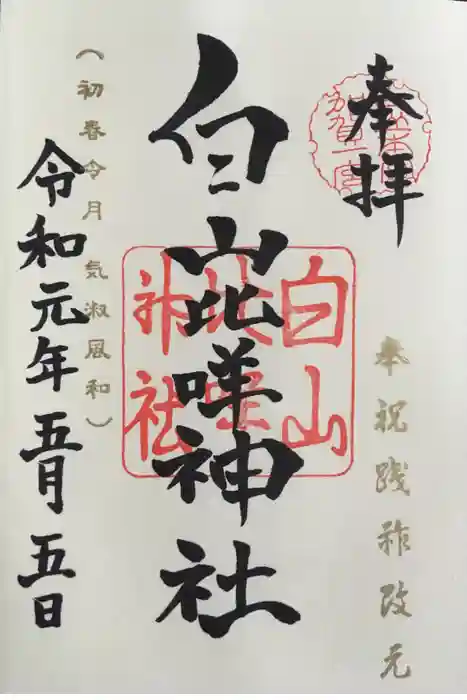 奉拝
奉祝践祚改元
白山比咩神社
白山
比咩
神社
(初春令月 気淑風和)
令和元年五月五日